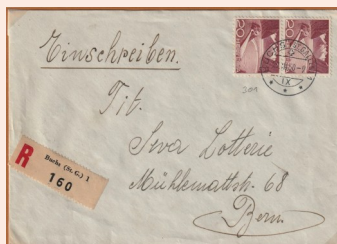 Einschreiben.
20 20
301
Tit.
Seva Lotterie
Mühlemattstr. 68
Bern.
R
Buchs (St. G.) 1
160